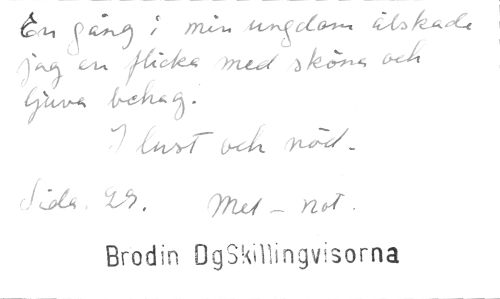 En gång i min ungdom älskade
jag en flicka med sköna och
ljuva behag.
I lust och nöd.
Sida. 29.   Mel - not.
Brodin DgSkillingvisorna